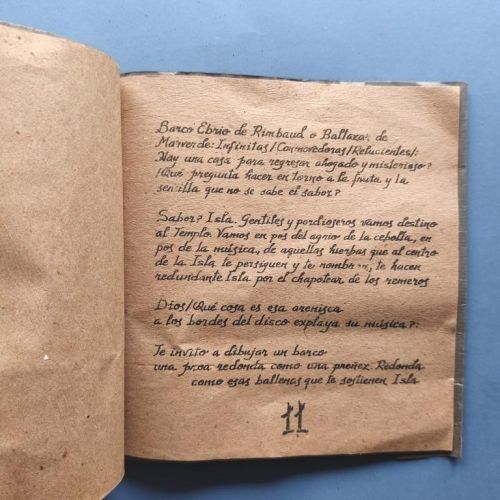 Barco Ebrio de Rimbaud o Baltazar de
Marverde: Infinitas/Conmovedoras/Relucientes/:
Hay una casa para regresar ahogado y misterioso?
¡Qué pregunta hacer en torno a la fruta y la
sencilla que no se sabe el sabor?
Sabor? Isla. Gentiles y pordioseros vamos destino
al Templo. Vamos en pos del agrio de la cebolla, en
pos de la música, de aquellas hierbas que al centro
de la Isla te persiguen y te nombran, te hacen
redundante Isla por el chapotear de los remeros
Dios/Qué cosa es esa arenisca
a los bordes del disco explaya su música?:
Te invito a dibujar un barco
una proa redonda como una preñez. Redonda
como esas ballenas que te sostienen Isla
11